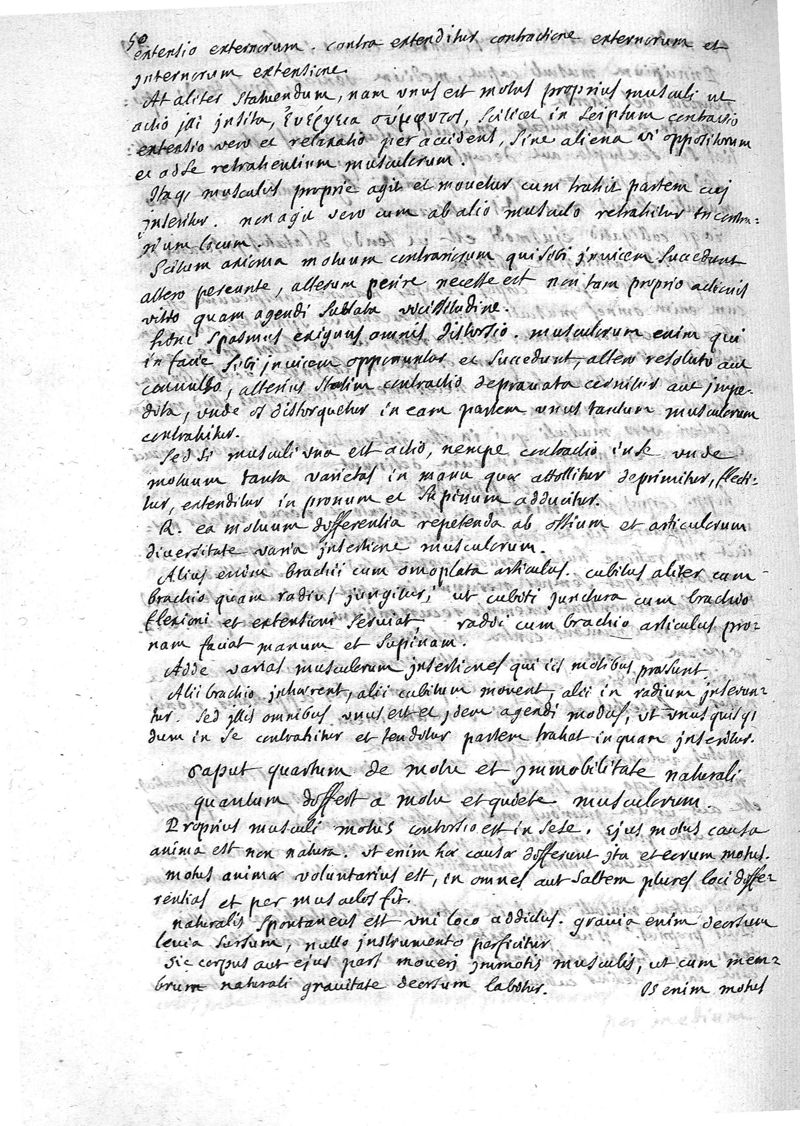 50
extensio externorum. contra extenditur contractione externorum et
jnternorum extensione.
At aliter statuendum, nam unus est motus proprius musculi ut
actio jlli jnsita, ἐνέργεια σύμφυτος, scilicet in seipsum contractio
extensio vero et relaxatio per accidens, sive aliena vi oppositorum
et ad se retrahentium musculorum.
Itaq; musculus proprie agit et movetur cum trahit partem cuj
jnseritur. non agit vero cum ab alio musculo retrahitur in contra=
rium locum.
Scitum axioma motuum contrariorum qui sibi jnvicem succedunt
altero pereunte, alterum perire necesse est non tam proprio actionis
vitio quam agendi sublata vicissitudine.
hinc spasmus exiguus omnis distorsio. musculorum enim qui
in facie sibi jnvicem opponuntur et succedunt, altero resoluto aut
convulso, alterius statim contractio depravata cernitur aut jmpe=
dita, unde os distorquetur in eam partem unus tantum musculorum
contrahitur.
Sed si musculi una est actio, nempe contractio in se unde
motuum tanta varietas in manu quæ attollitur deprimitur, flecti=
tur, extenditur in pronum et supinum adducitur.
R. ea motuum differentia repetenda ab ossium et articulorum
diversitate varia jnsertione musculorum.
Alius enim brachii cum omoplata articulus. cubitus aliter cum
brachio quam radius jungitur, ut cubiti junctura cum brachio
flexioni et extensioni serviat radii cum brachio articulus pro=
nam faciat manum et supinam.
Adde varias musculorum jnsertiones qui iis motibus præsunt.
Alii brachio jnhærent, alii cubitum movent, alii in radium jnserun=
tur. sed jllis omnibus unus est et jdem agendi modus, ut unusquisq;
dum in se contrahitur et tenditur partem trahat in quam jnseritur.
Caput quartum de motu et jmmobilitate naturali
quantum differt a motu et quiete musculorum.
Proprius musculi motus contortio est in sese. Ejus motus causa
anima est non natura. ut enim hæ causæ differunt jta et eorum motus.
motus animæ voluntarius est, in omnes aut saltem plures loci diffe=
rentias et per musculos fit.
naturalis spontaneus est uni loco addictus. gravia enim deorsum
levia sursum, nullo jnstrumento perficitur
sic corpus aut ejus pars moveri jmmotis musculis, ut cum mem=
brum naturali gravitate deorsum labitur. Is enim motus